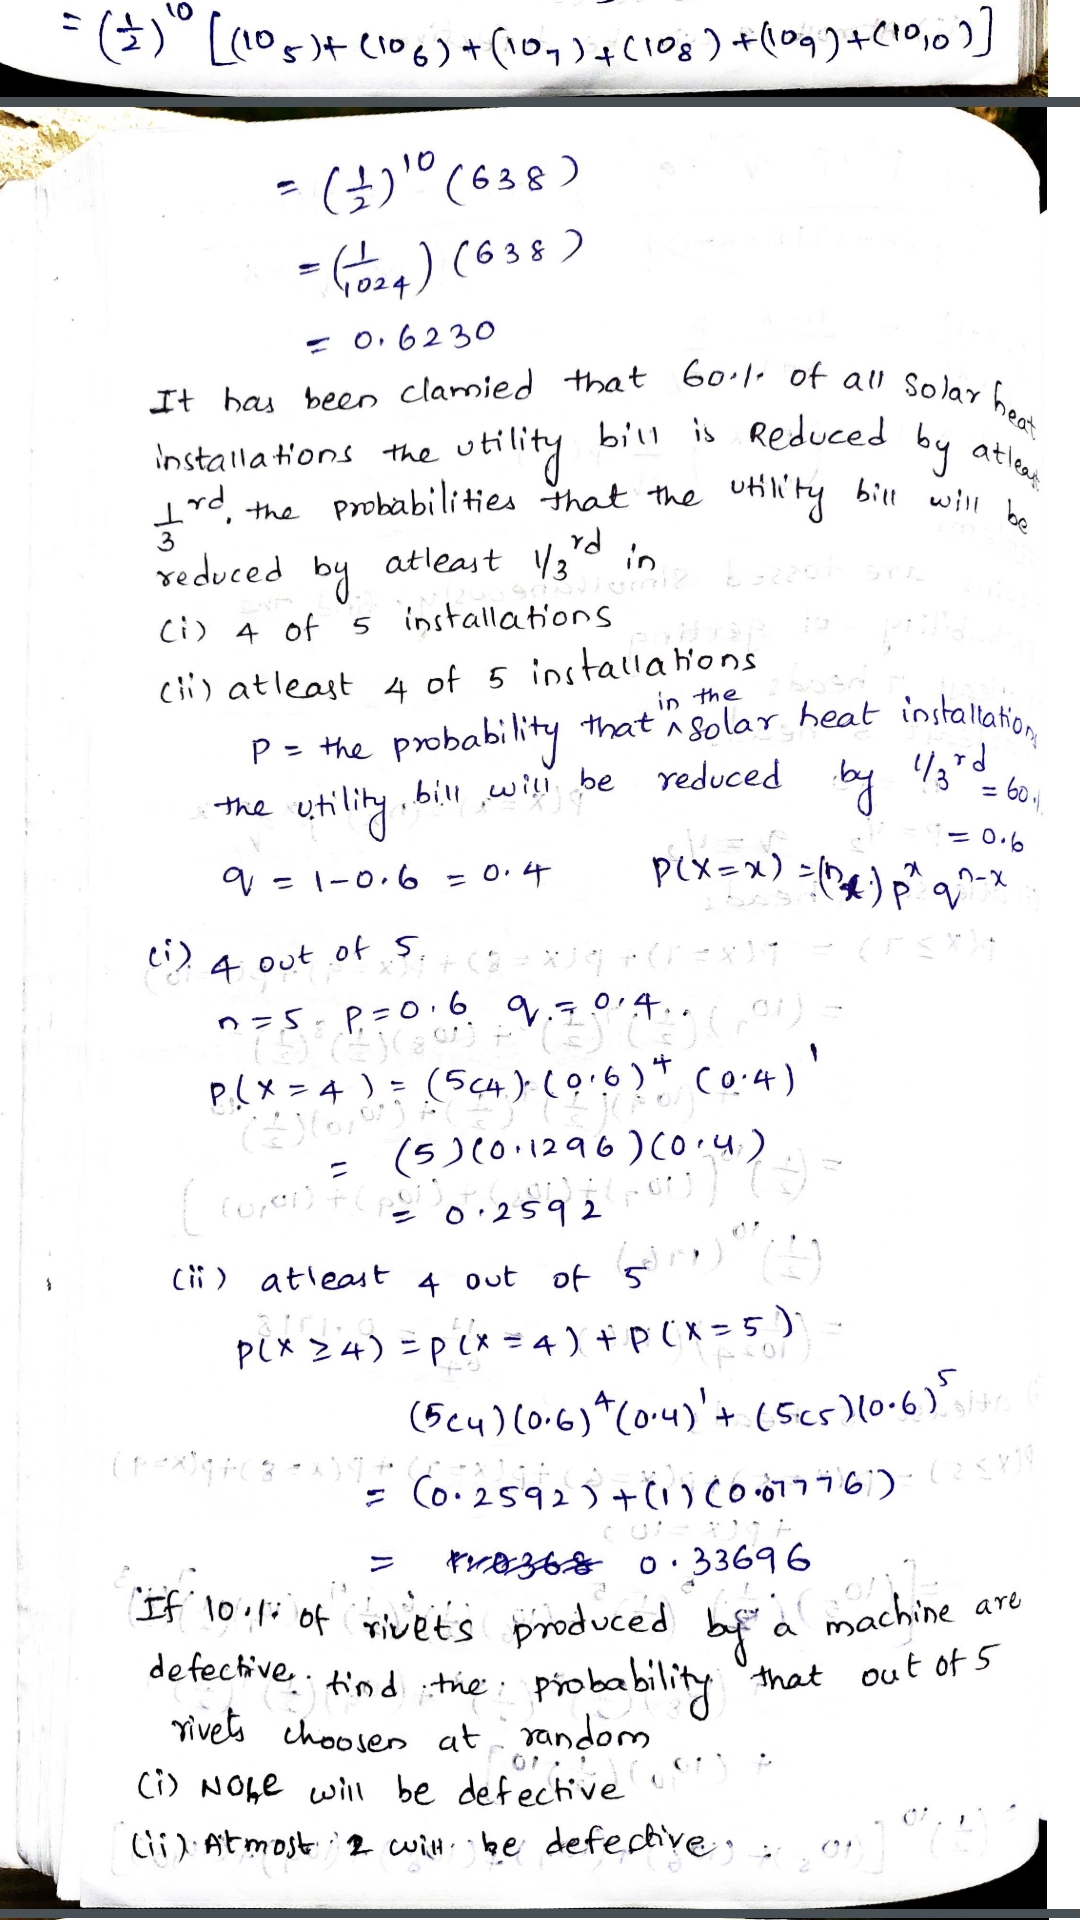 = (1/2)^10 [(10₅)+(10₆)+(10₇)+(10₈)+(10₉)+(10₁₀)]
= (1/2)^10 (638)
= (1/1024) (638)
= 0.6230
It has been clamied that 60% of all Solar heat
installations the utility bill is Reduced by atleast
1/3 rd. the probabilities that the utility bill will be
reduced by atleast 1/3rd in
(i) 4 of 5 installations
(ii) atleast 4 of 5 installations
P = the probability that in the solar heat installation
the utility bill will be reduced by 1/3rd = 60%
= 0.6
q = 1-0.6 = 0.4 P(X=x) = (nCx) p^x q^n-x
(i) 4 out of 5.
n=5 P=0.6 q=0.4
P(X=4) = (5C4) (0.6)^4 (0.4)^1
= (5)(0.1296)(0.4)
= 0.2592
(ii) atleast 4 out of 5
P(X ≥ 4) = P(X=4) + P(X=5)
(5C4)(0.6)^4(0.4)^1 + (5C5)(0.6)^5
= (0.2592)+(1)(0.07776)
= 0.33696
If 10% of rivets produced by a machine are
defective. find the probability that out of 5
rivets choosen at random
(i) None will be defective
(ii) Atmost 2 will be defective